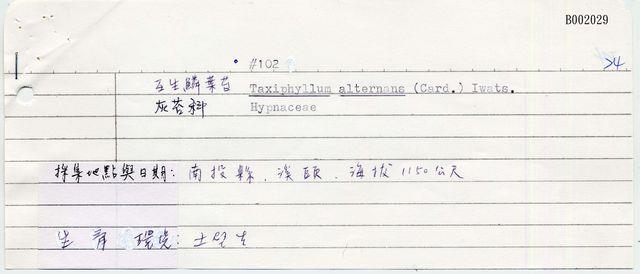 B002029
#102
24
互生鱗葉苔 Taxiphyllum alternans (Card.) Iwats.
灰苔科 Hypnaceae
採集地點與日期: 南投縣、溪頭、海拔 1150公尺
生育環境: 土生